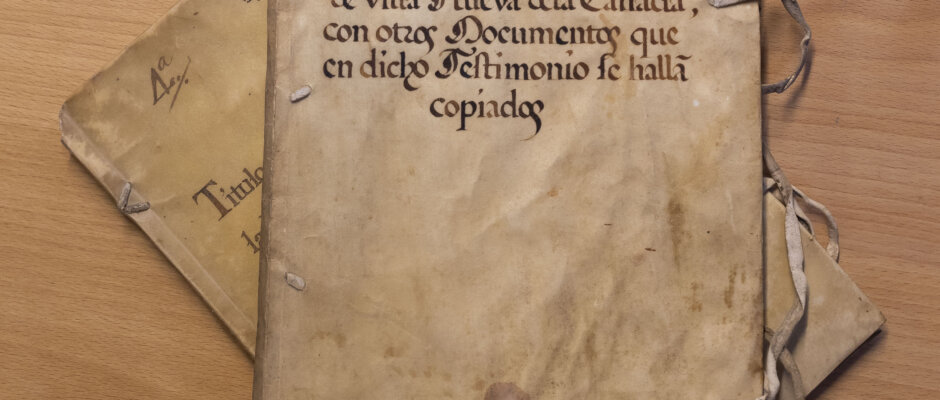 de Villa Nueva dela Cañada,
con otros Documentos que
en dicho Testimonio se hallã
copiados
4ª
Titulo